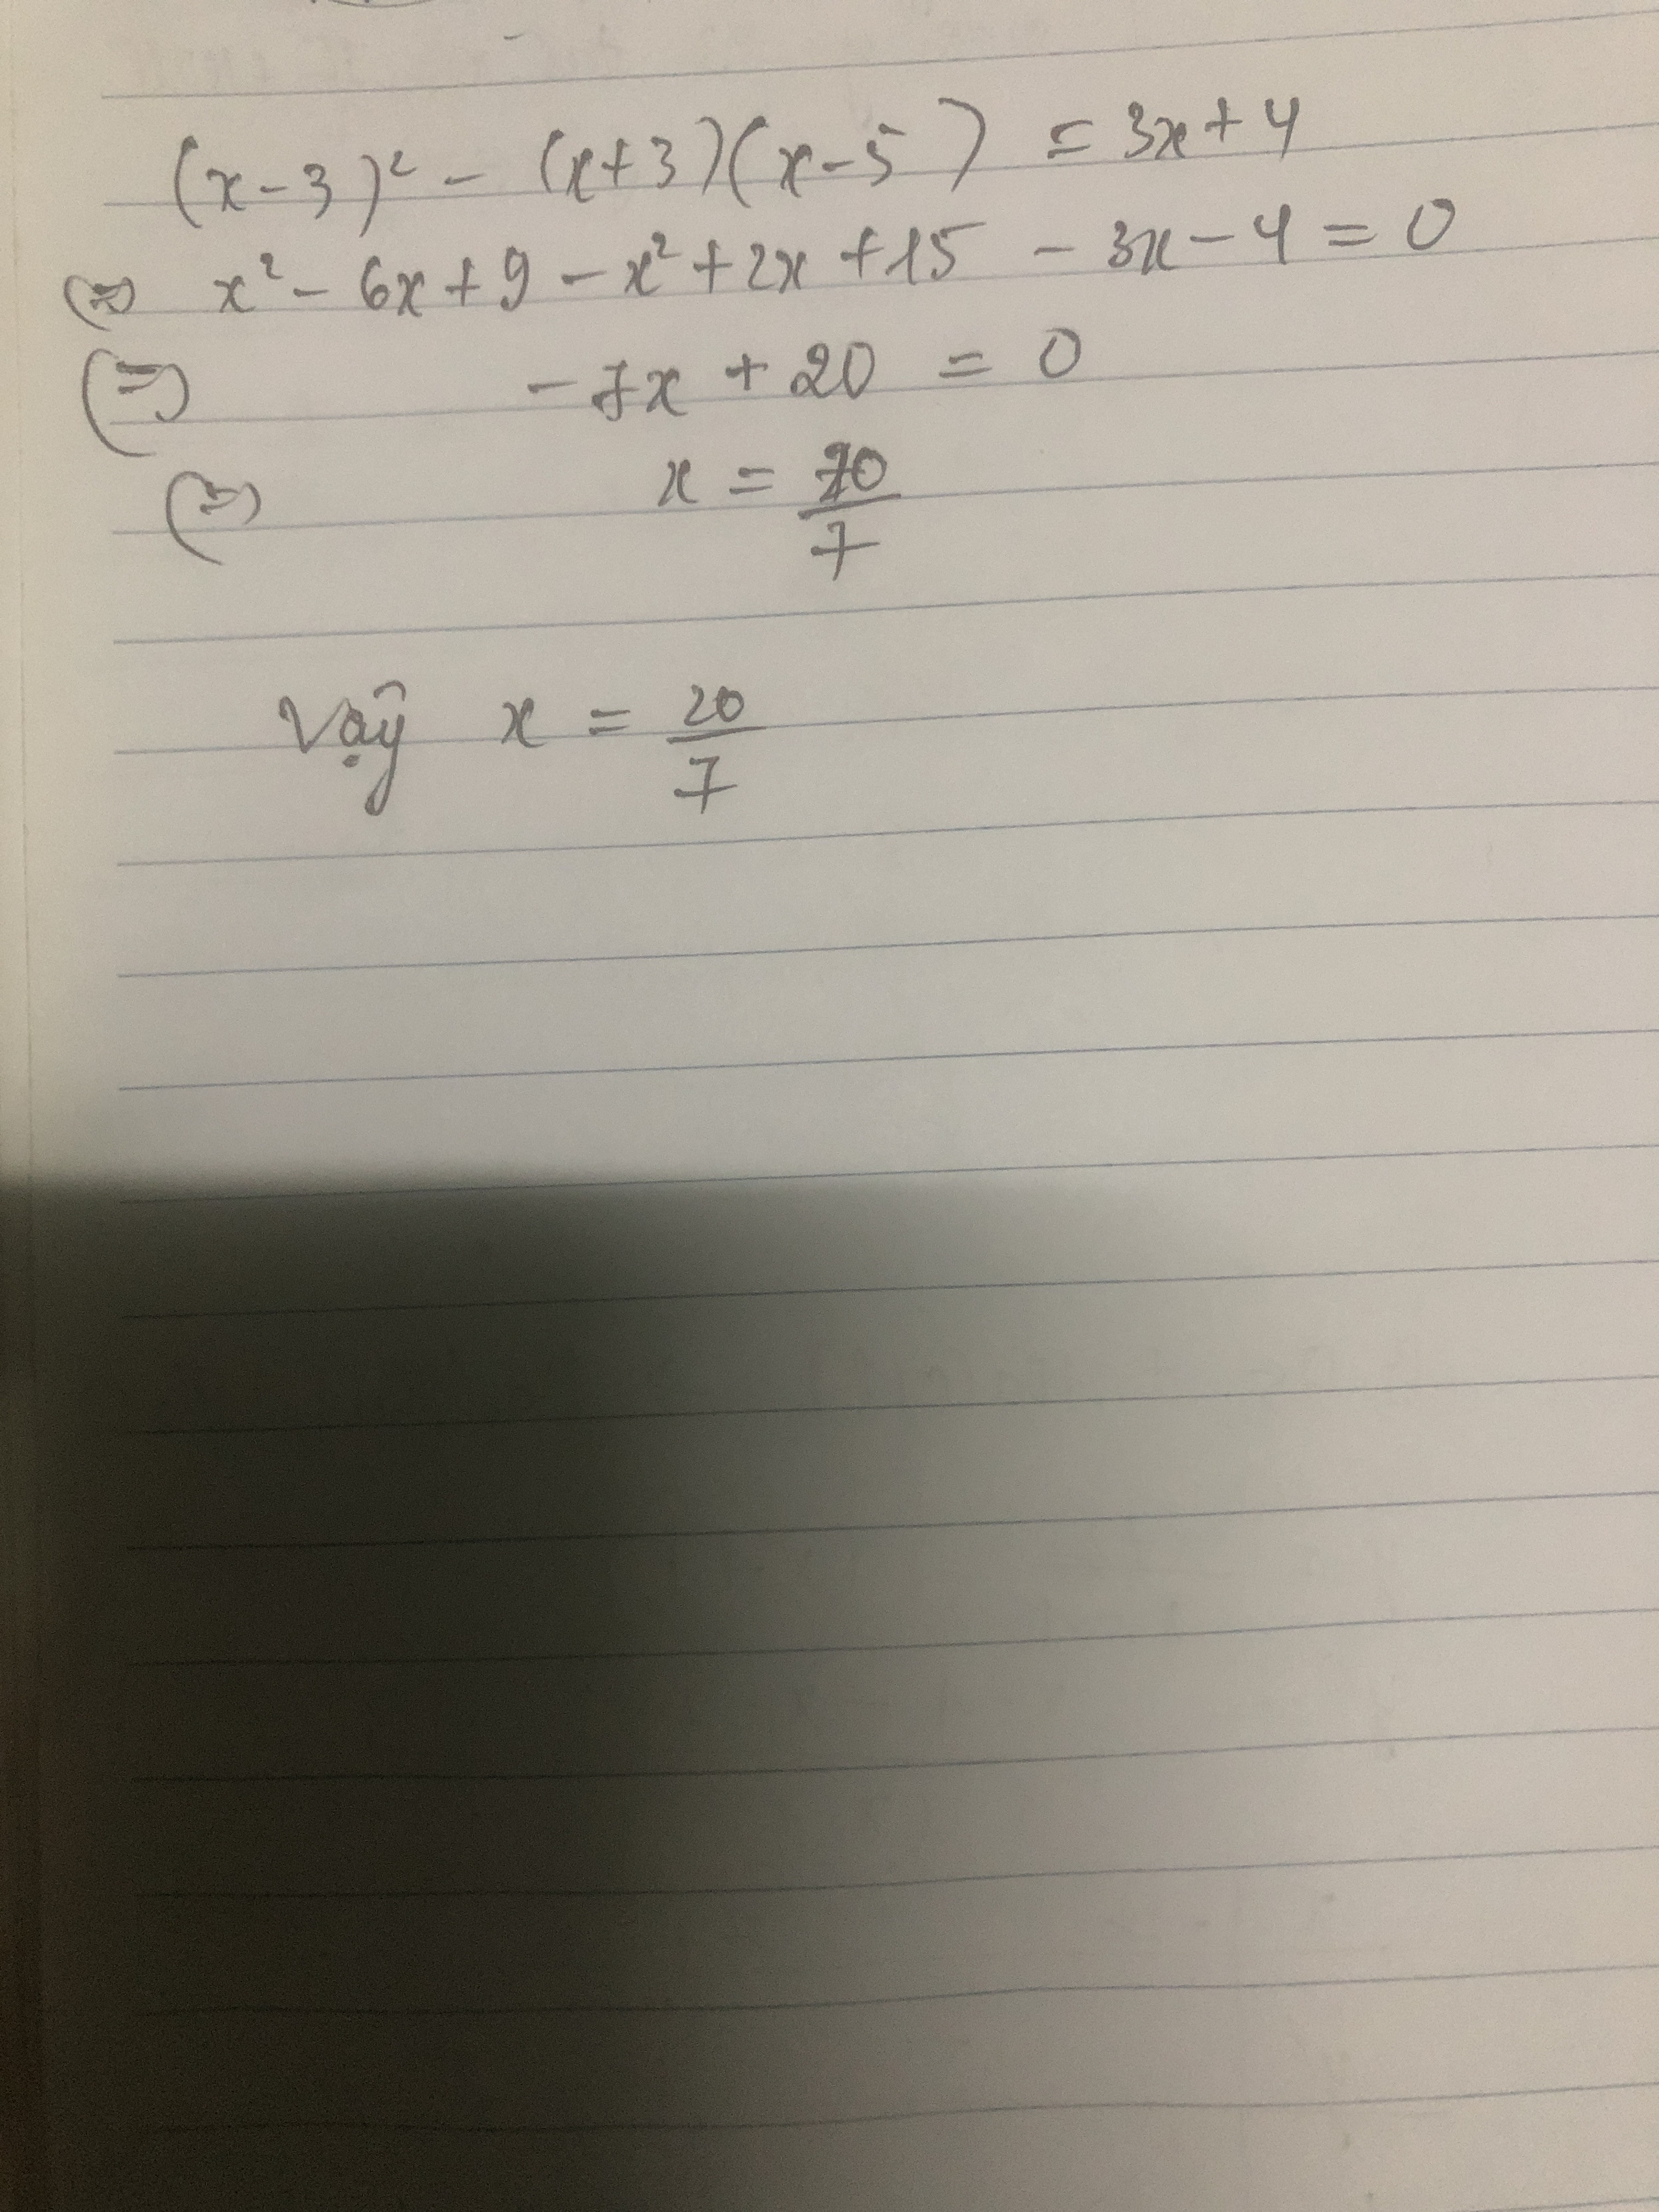 (x-3)² - (x+3)(x-5) = 3x+4
(=) x² - 6x + 9 - x² + 2x + 15 - 3x - 4 = 0
(=) - 7x + 20 = 0
(=) x = 20/7
Vậy x = 20/7